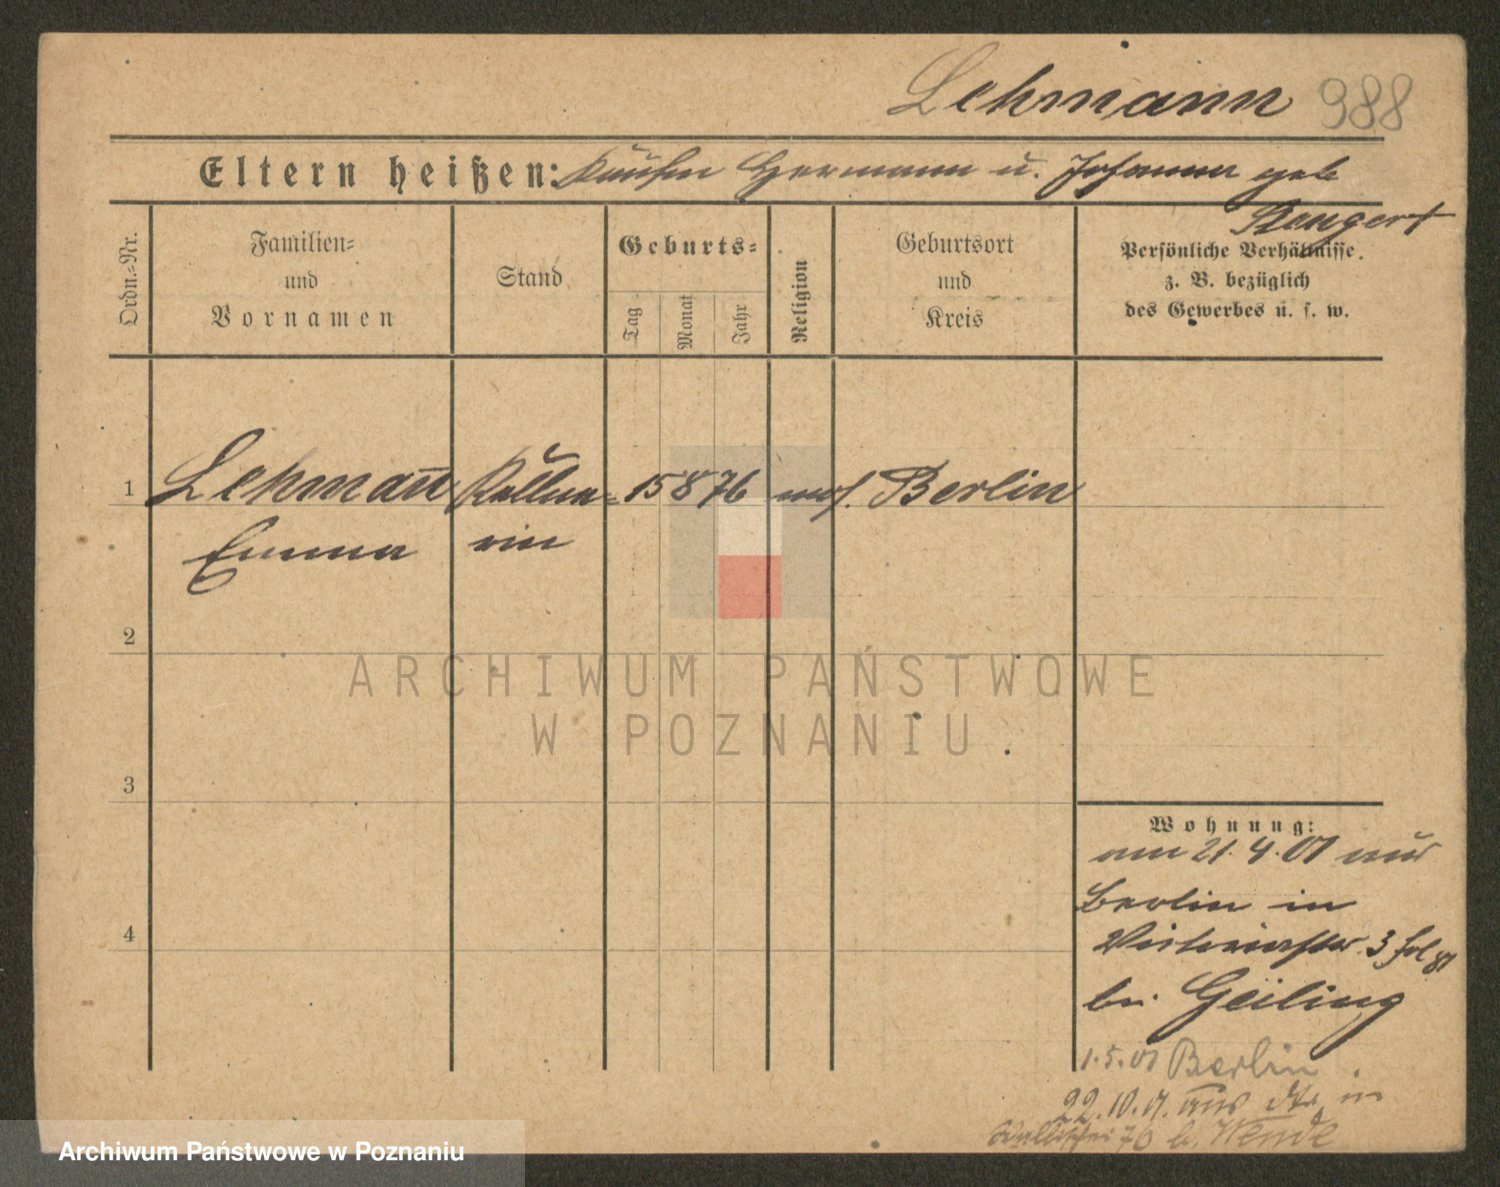 Lehmann 988
Eltern heißen: Kaufm Hermann u. Johanna geb
Rengert
Ordn.-Nr.
Familien-
und
Vornamen
Stand
Geburts-
Tag
Monat
Jahr
Religion
Geburtsort
und
Kreis
Persönliche Verhältnisse
z. B. bezüglich
des Gewerbes u. s. w.
1 Lehmann Kellne- 15 8 76 mos. Berlin
Emma rin
2
3
4
Wohnung:
am 21.4.01 aus
Berlin in
3 fol 81
bei Geiling
1.5.01 Berlin.
22.10.01. aus in
76 b. Wende
ARCHIWUM PAŃSTWOWE
W POZNANIU
Archiwum Państwowe w Poznaniu